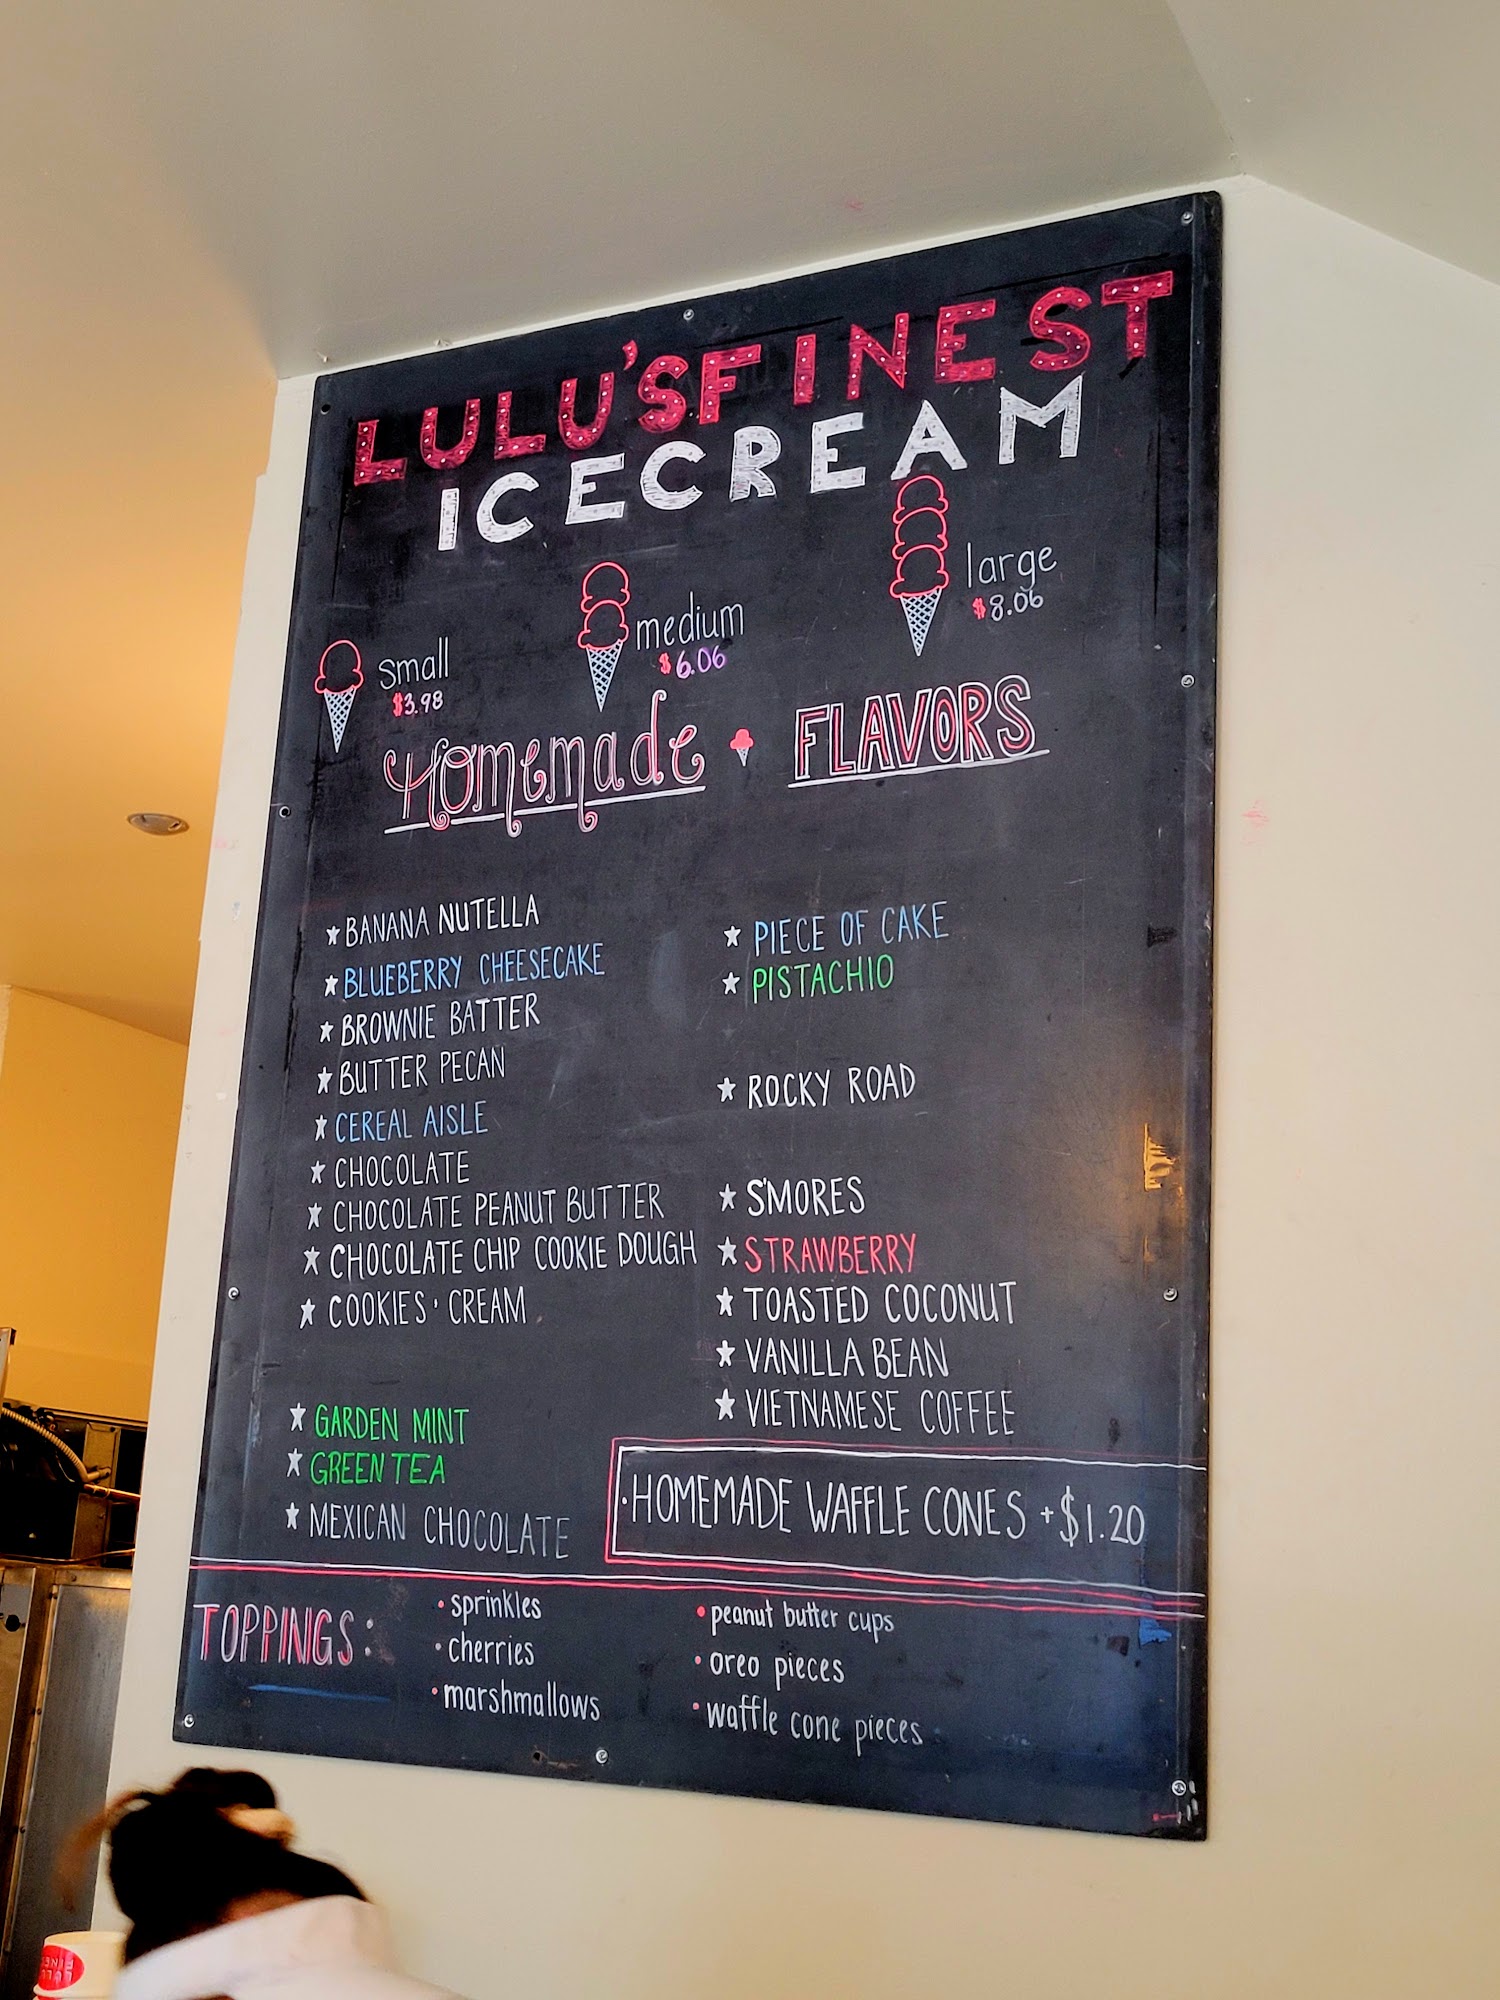 LULU'S FINEST
ICE CREAM
small
$3.98
medium
$6.06
large
$8.06
Homemade FLAVORS
BANANA NUTELLA
BLUEBERRY CHEESECAKE
BROWNIE BATTER
BUTTER PECAN
CEREAL AISLE
CHOCOLATE
CHOCOLATE PEANUT BUTTER
CHOCOLATE CHIP COOKIE DOUGH
COOKIES · CREAM
GARDEN MINT
GREEN TEA
MEXICAN CHOCOLATE
PIECE OF CAKE
PISTACHIO
ROCKY ROAD
S'MORES
STRAWBERRY
TOASTED COCONUT
VANILLA BEAN
VIETNAMESE COFFEE
·HOMEMADE WAFFLE CONES +$1.20
TOPPINGS:
• sprinkles
• cherries
• marshmallows
• peanut butter cups
• oreo pieces
• waffle cone pieces